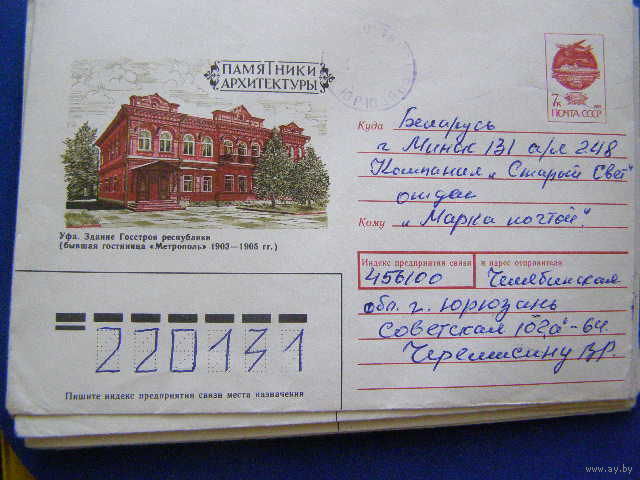 ПАМЯТНИКИ
АРХИТЕКТУРЫ
7к
ПОЧТА СССР
Уфа. Здание Госстроя республики
(бывшая гостиница «Метрополь» 1903—1905 гг.)
Куда Беларусь
г Минск 131 а/я 248
Компания „Старый Свет"
отдел
Кому „Марка почтой"
Индекс предприятия связи и адрес отправителя
456100 Челябинская
обл. г. Юрюзань
Советская 102а-64
Черемисину В.Р.
220131
Пишите индекс предприятия связи места назначения
www.ay.by